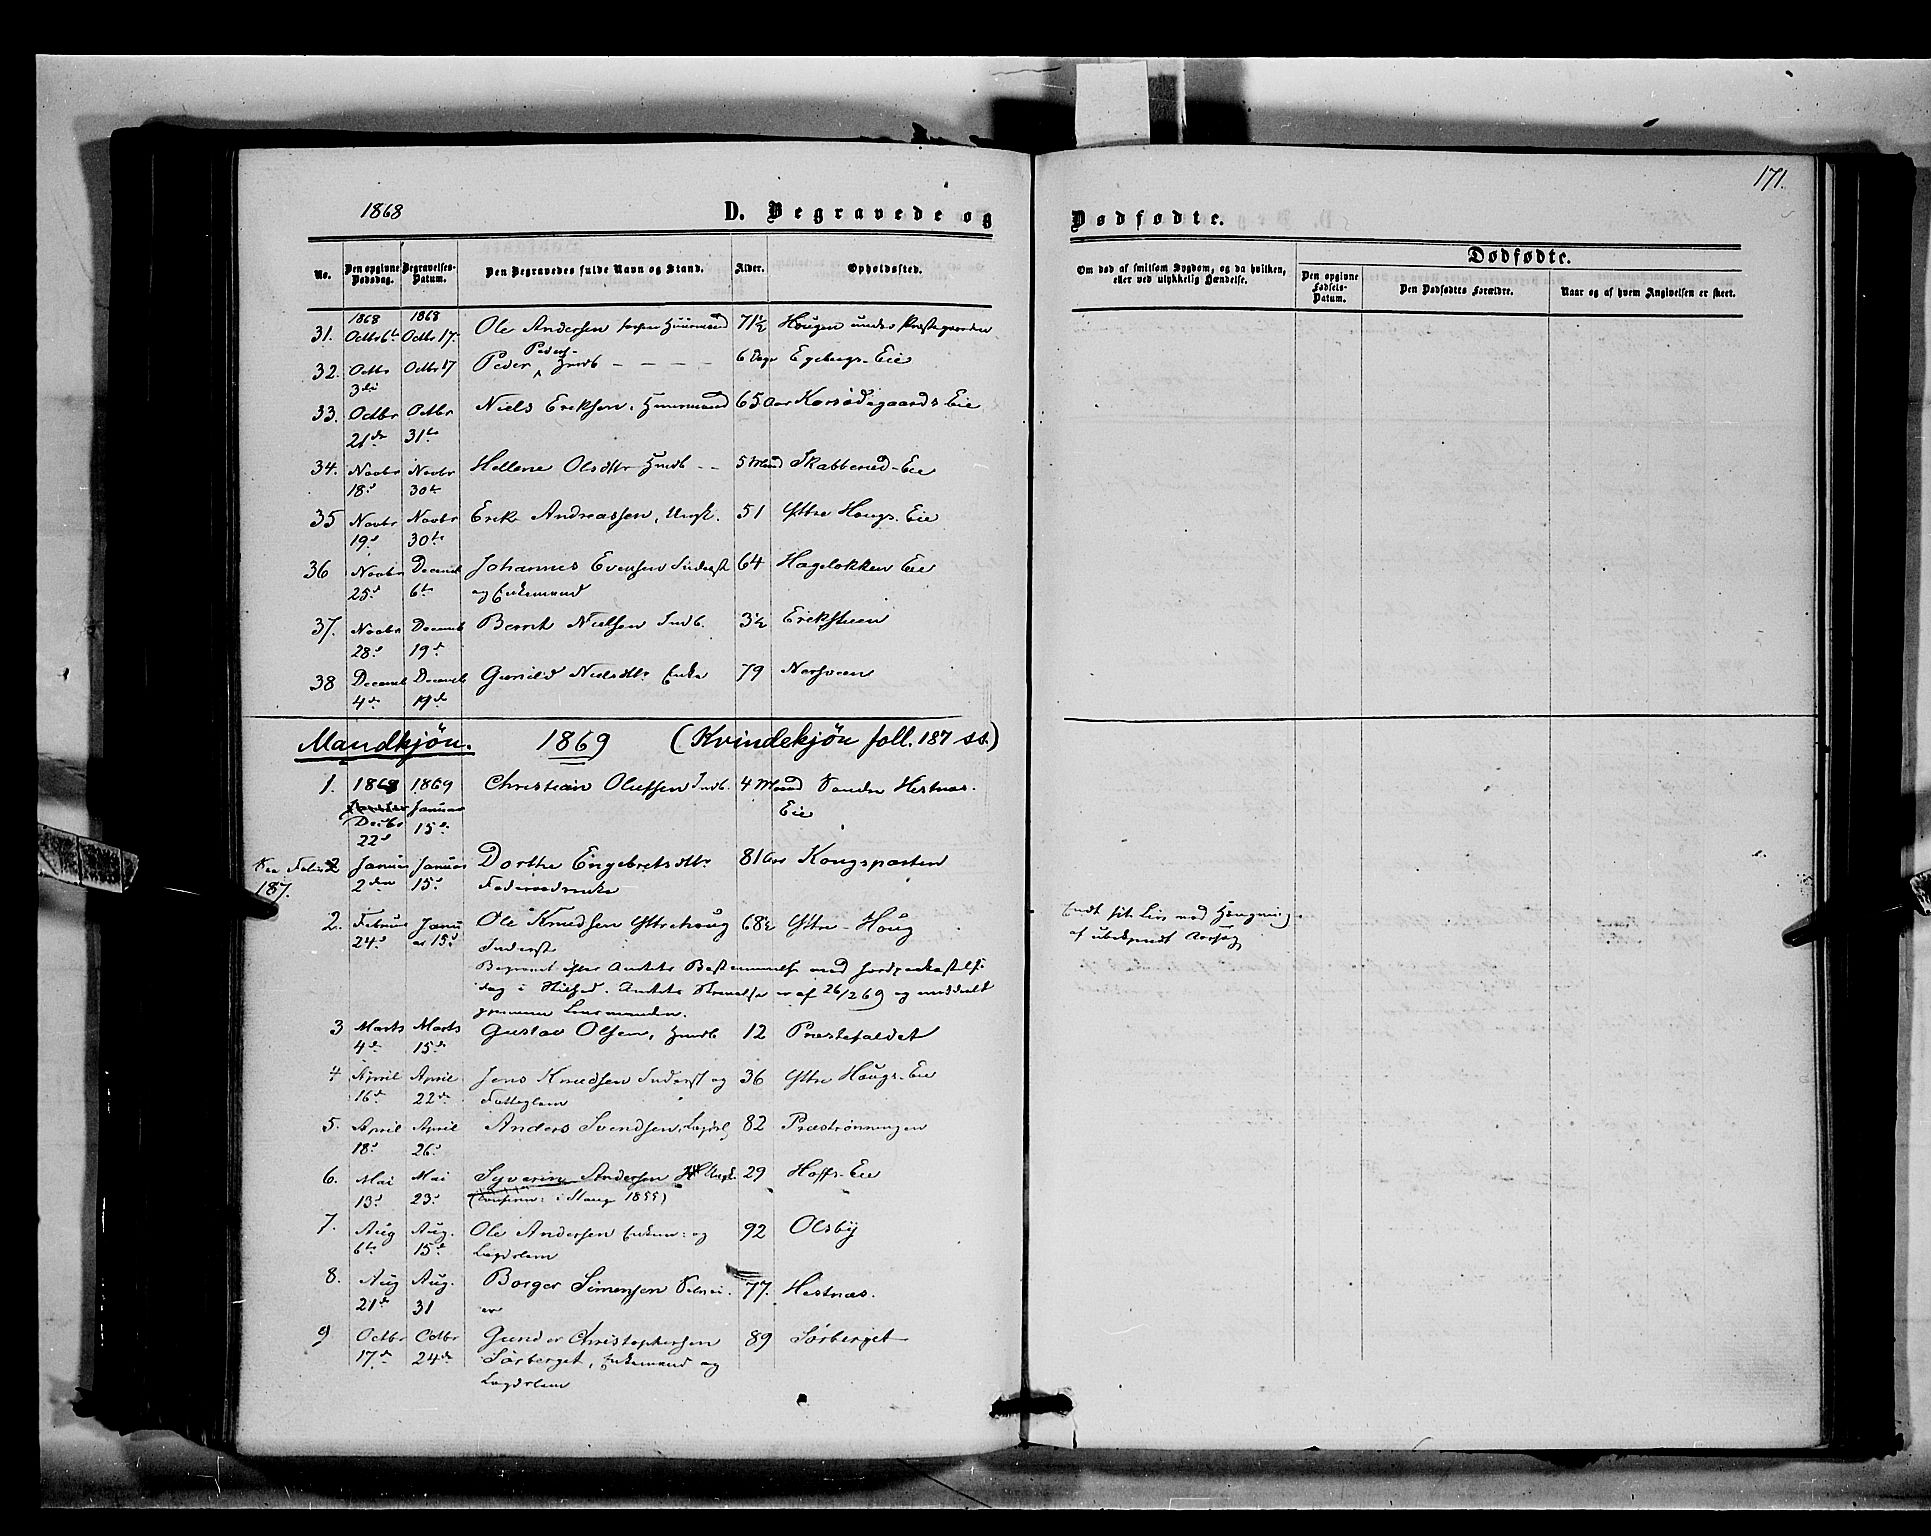 171.
1868 D. Begravede og Dødfødte.
No. Den opgivne Dødsdag. Begravelses-Datum. Den Begravedes fulde Navn og Stand. Alder. Opholdssted.
Om død af smitsom Sygdom, og da hvilken, eller ved ulykkelig Hændelse.
Dødfødte.
Den opgivne Fødsels-Datum. Den Dødfødtes Forældre. Naar og af hvem Angivelsen er skeet.
1868 1868
31. Octbr 6te Octbr 17. Ole Andersen Huusmand 71½ Hougen under Præstegaarden
32. Octbr 3die Octbr 17 Peder Peders. Hmdb - - - - 6 Dage Egebergs-Eie
33. Octbr 21de Octbr 31te Niels Eriksen, Huusmand 65 Aar Korsødegaards Eie
34. Novbr 18de Novbr 30te Hellene Olsdtr Hmdb - - 5 Mand Skabberud-Eie
35 Novbr 19de Novbr 30te Erik Andreassen, Ungk. 51 Yttre Hougs-Eie
36 Novbr 25de Decemb 6te Johannes Evensen Inderst 64 Hageløkken Eie
og Enkemand
37. Novbr 28de Decemb 19de Bernt Nielsen Indb. 3½ Eriksteen
38 Decemb 4de Decemb 19de Gunild Nielsdtr Enke 79 Norsveen
Mandkjøn. 1869 (Kvindekjøn foll. 187 ss.)
1. 1868 Decbr 22de 1869 Januar 15de Christian Olufsen Indb. 4 Mand Søndre Hestnæs-
Eie
See Folie 187. 2 Januar 2den Januar 15de Dorthe Engebretsdtr 81 Aar Kongsparten
Føderaadsenke
2. Februar 24de Januar 15de Ole Knudsen Yttrehoug 68½ Yttre-Houg
Inderst
Endt sit Liv ved Hængning
af ubekjendt Aarsag
Begravet efter Amtets Bestemmelse med Jordpaakastelse
dag i Stilhed. Amtets Skrivelse er af 26/2 69 og meddelt
gjennem Lensmanden.
3 Marts 4de Marts 15de Gustav Olsen, Hmdb 12 Præstefaldet
4 April 16de April 22de Jens Knudsen Inderst og 36 Yttre Hougs-Eie
Fattiglem
5. April 18de April 26de Anders Svendsen, Lægdsl 82 Præstrønningen
6. Mai 13de Mai 23de Syverin Andersen Ungk. 29 Hoffs-Eie
(Confirm: i Stange 1855)
7. Aug 6te Aug. 15de Ole Andersen Enkem: og 92 Olsby
Lægdslem
8. Aug 21de Aug. 31 Borger Simensen Selvei- 77. Hestnæs.
er
9 Octbr 17de Octbr 24de Gunder Christophersen 89 Sørberget
Sørberget, Enkemand og
Lægdslem